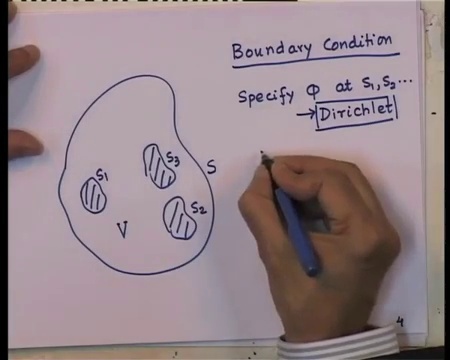 Boundary Condition
Specify Φ at S₁, S₂...
→ Dirichlet
S₁
S₃
S
S₂
V
4